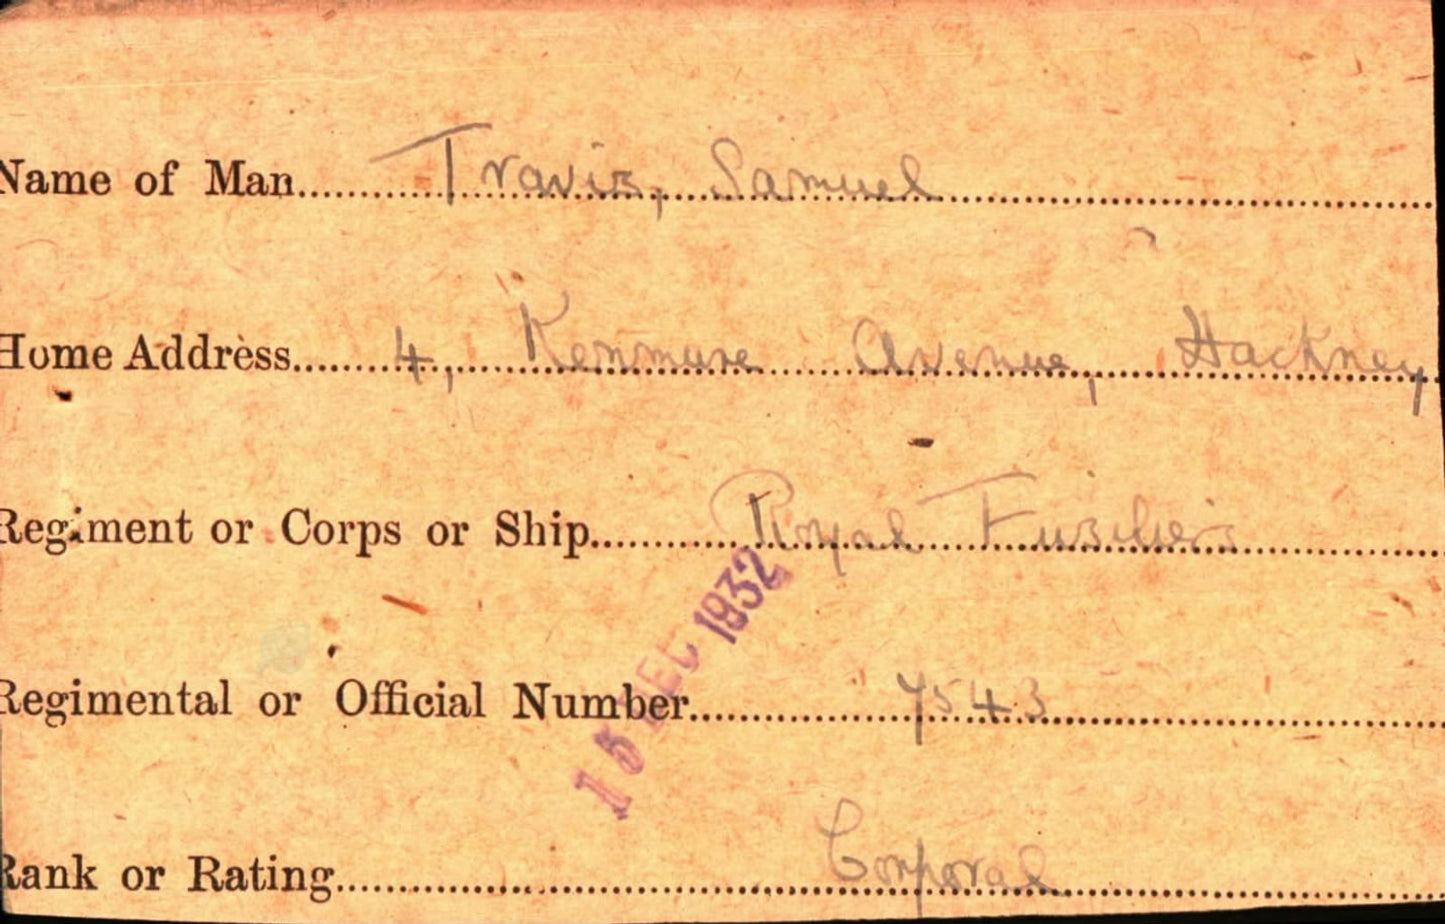 Name of Man Travis, Samuel
Home Address 4, Kenmure Avenue, Hackney
Regiment or Corps or Ship Royal Fusiliers
15 DEC 1932
Regimental or Official Number 7543
Rank or Rating Corporal